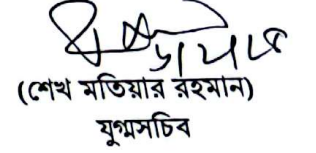 (শেখ মতিয়ার রহমান)
যুগ্মসচিব